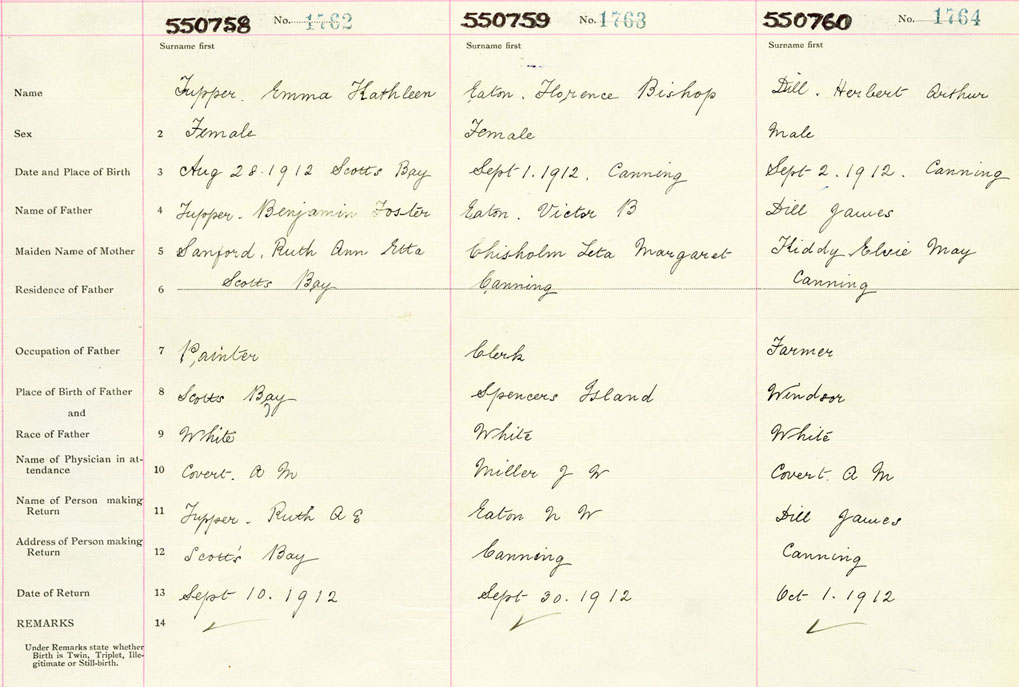 550758 No. 1762 550759 No. 1763 550760 No. 1764
Surname first Surname first Surname first
Name Tupper. Emma Kathleen Eaton. Florence Bishop Dill. Herbert Arthur
Sex 2 Female Female Male
Date and Place of Birth 3 Aug 28.1912 Scotts Bay Sept 1.1912. Canning Sept 2.1912. Canning
Name of Father 4 Tupper. Benjamin Foster Eaton. Victor B Dill James
Maiden Name of Mother 5 Sanford. Ruth Ann Etta Chisholm Leta Margaret Kiddy Elsie May
Residence of Father 6 Scotts Bay Canning Canning
Occupation of Father 7 Painter Clerk Farmer
Place of Birth of Father 8 Scotts Bay Spencers Island Windsor
and
Race of Father 9 White White White
Name of Physician in at-
tendance 10 Covert. A M Miller J W Covert. A M
Name of Person making
Return 11 Tupper. Ruth A E Eaton N W Dill James
Address of Person making
Return 12 Scott's Bay Canning Canning
Date of Return 13 Sept 10.1912 Sept 30.1912 Oct 1.1912
REMARKS 14
Under Remarks state whether
Birth is Twin, Triplet, Ille-
gitimate or Still-birth.